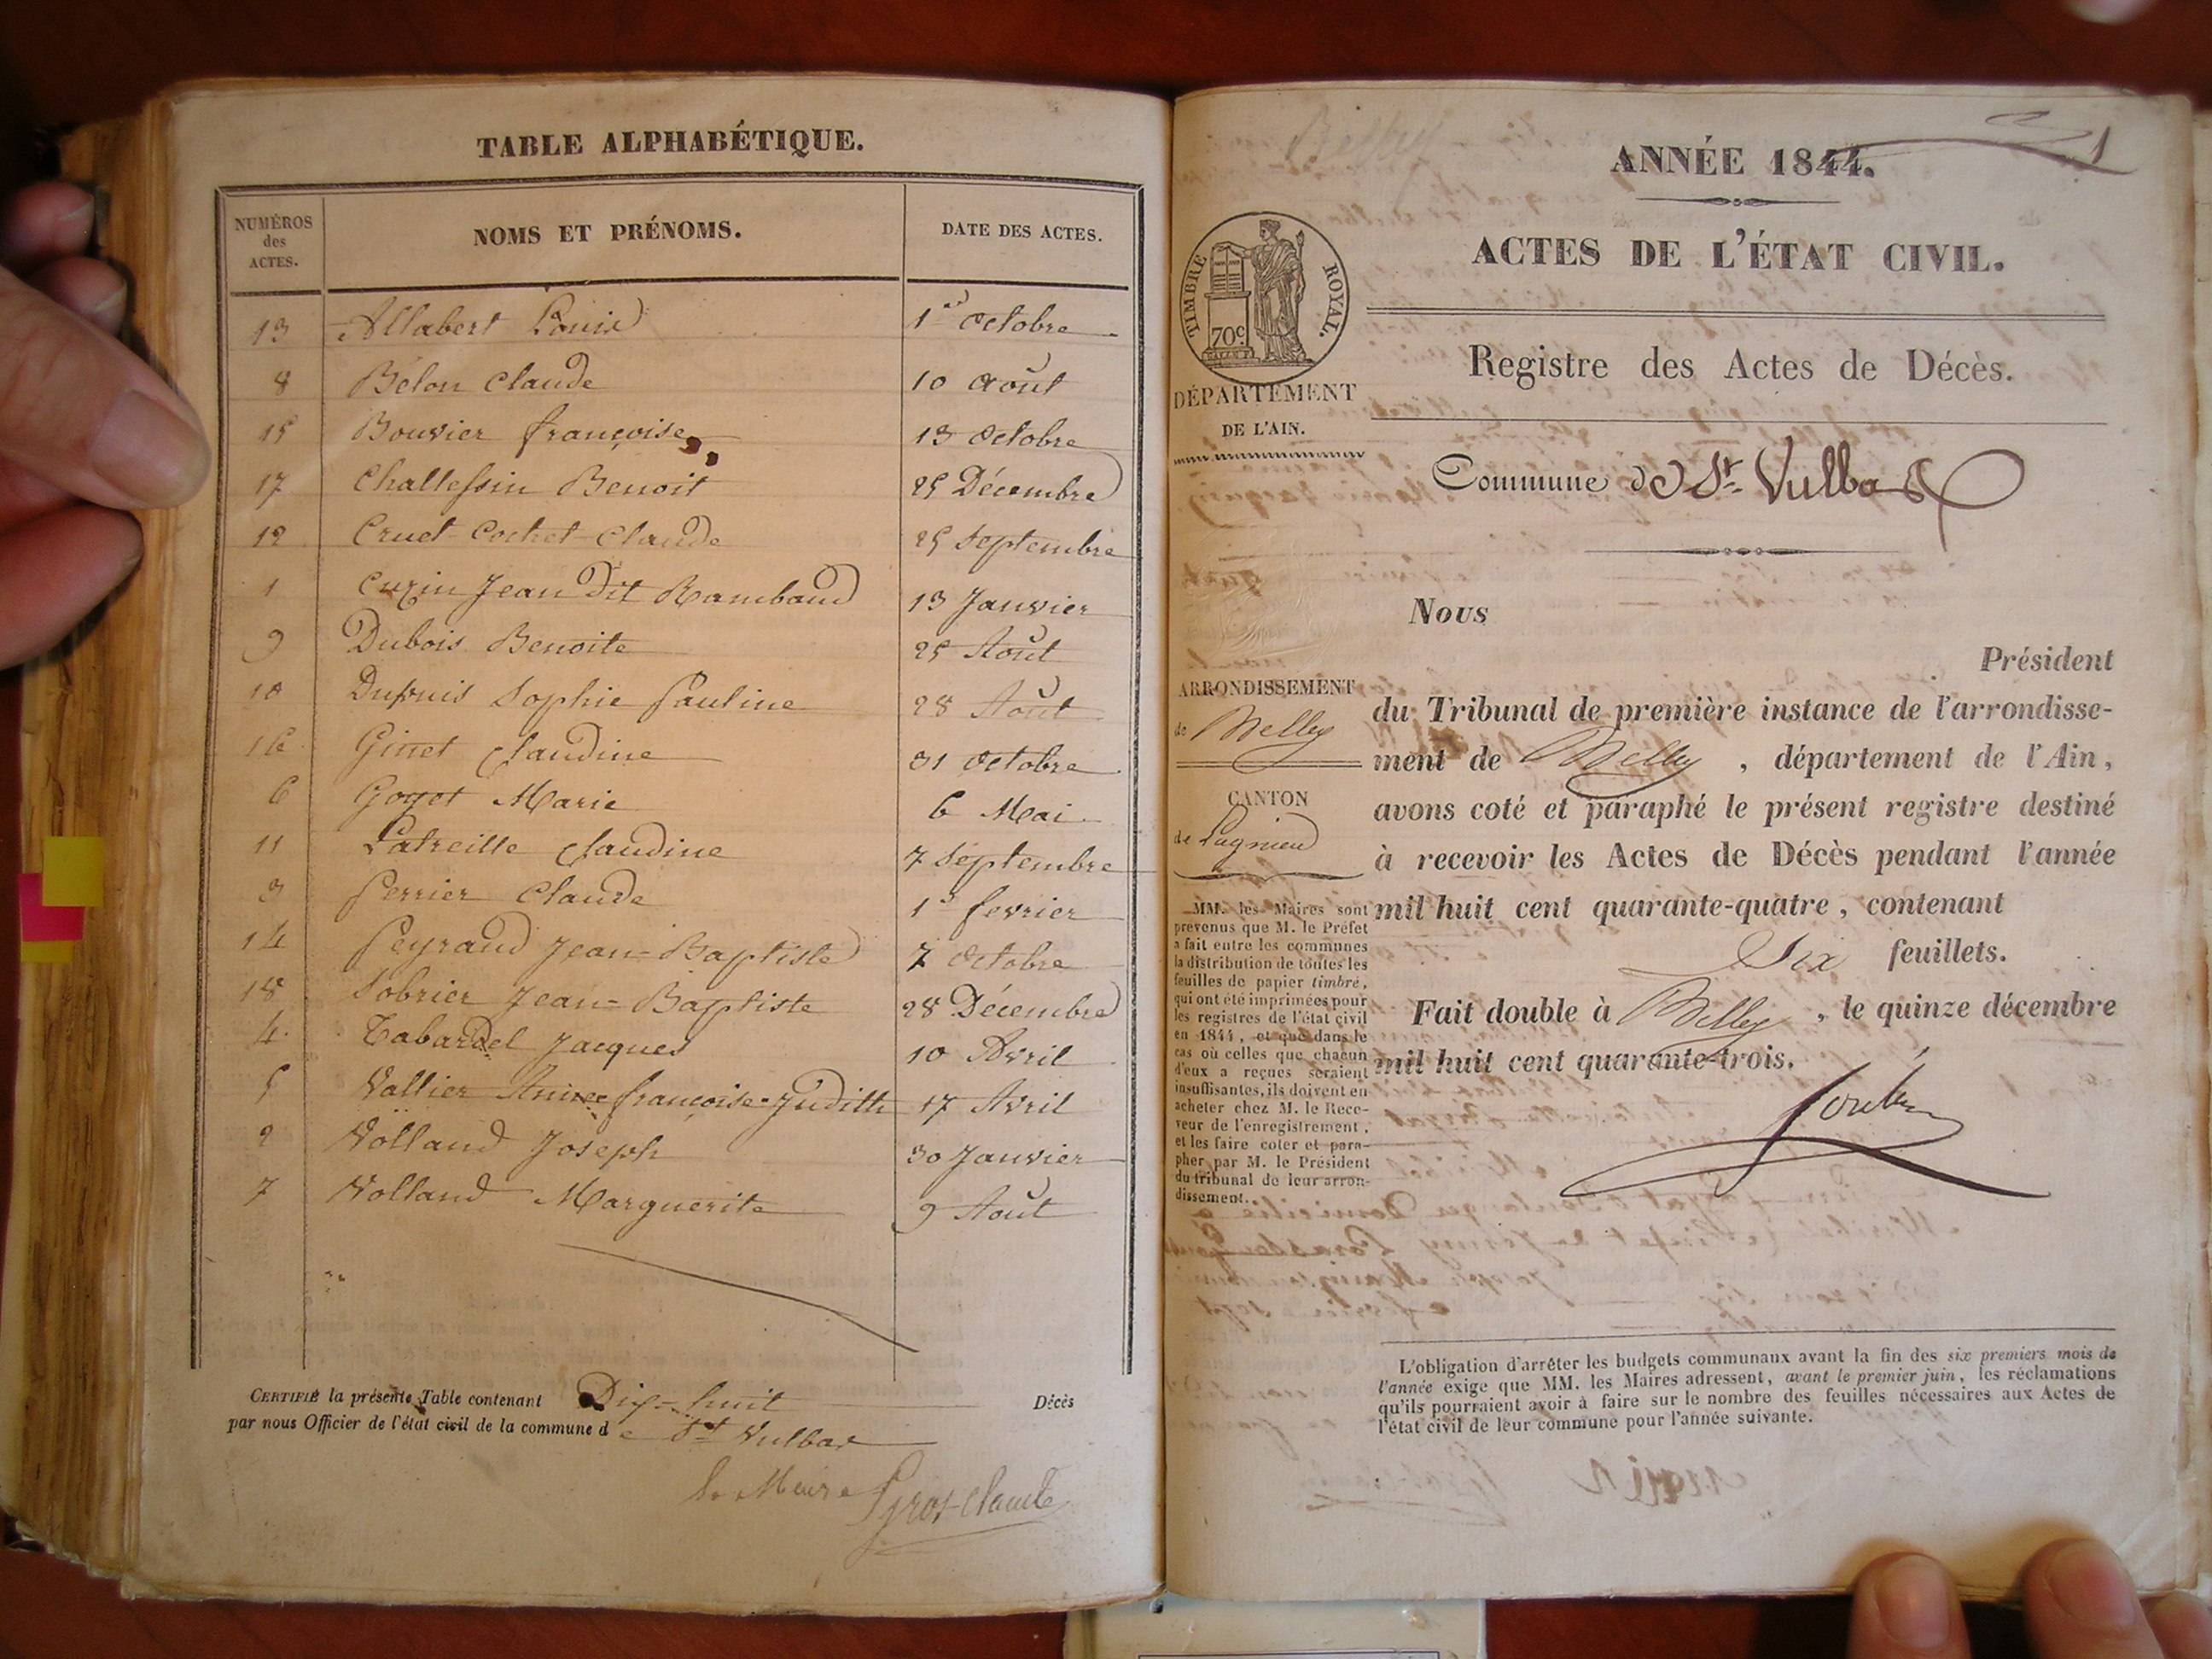 TABLE ALPHABÉTIQUE.
NUMÉROS des ACTES.
NOMS ET PRÉNOMS.
DATE DES ACTES.
13 Allabert Louis 1er Octobre
8 Bélon Claude 10 août
15 Bouvier françoise 13 Octobre
17 Challessin Benoit 25 Décembre
12 Cruet-Cochet-Claude 25 Septembre
1 Cuzin Jean Dit Rambaud 13 Janvier
9 Dubois Benoite 25 Août
10 Dupuis Sophie Pauline 28 Août
16 Ginet Claudine 31 Octobre
6 Goyet Marie 6 Mai
11 Latreille Claudine 7 Septembre
3 Perrier Claude 1er fevrier
14 Peyraud Jean-Baptiste 7 Octobre
18 Sobrier Jean-Baptiste 28 Décembre
4 Tabardel Jacques 10 Avril
5 Vallier Anne françoise-Judith 17 Avril
2 Volland Joseph 30 Janvier
7 Volland Marguerite 9 Août
CERTIFIÉ la présente Table contenant Dix-huit Décès
par nous Officier de l'état civil de la commune de St Vulbas
le Maire Gros-Claude
1
ANNÉE 1844.
ACTES DE L'ÉTAT CIVIL.
TIMBRE ROYAL.
70c
DÉPARTEMENT
DE L'AIN.
Registre des Actes de Décès.
Commune de St. Vulbas
Nous
Président
du Tribunal de première instance de l'arrondisse-
ment de Belley , département de l'Ain,
avons coté et paraphé le présent registre destiné
à recevoir les Actes de Décès pendant l'année
mil huit cent quarante-quatre, contenant
Six feuillets.
Fait double à Belley , le quinze décembre
mil huit cent quarante-trois.
ARRONDISSEMENT
de Belley
CANTON
de Lagnieu
MM. les Maires sont
prévenus que M. le Préfet
a fait entre les communes
la distribution de toutes les
feuilles de papier timbré,
qui ont été imprimées pour
les registres de l'état civil
en 1844, et que dans le
cas où celles que chacun
d'eux a reçues seraient
insuffisantes, ils doivent en
acheter chez M. le Rece-
veur de l'enregistrement,
et les faire coter et para-
pher par M. le Président
du tribunal de leur arron-
dissement.
L'obligation d'arrêter les budgets communaux avant la fin des six premiers mois de
l'année exige que MM. les Maires adressent, avant le premier juin, les réclamations
qu'ils pourraient avoir à faire sur le nombre des feuilles nécessaires aux Actes de
l'état civil de leur commune pour l'année suivante.